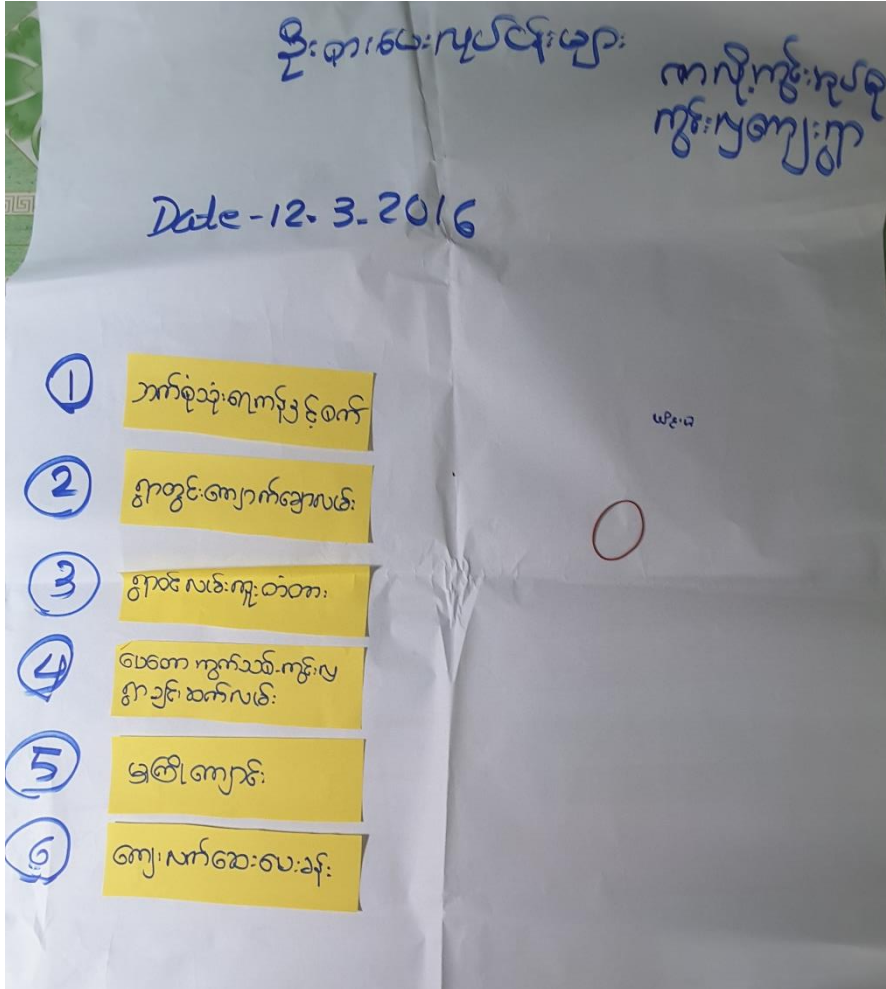 ဦးစားပေးလုပ်ငန်းများ
ကာလိုကျွန်းအုပ်စု
ကျွန်းလှကျေးရွာ
Date - 12. 3. 2016
1 ဘက်စုံသုံးရေကန်နှင့်စက်
2 ရွာတွင်းကျောက်ချောလမ်း
3 ရွာဝင်လမ်းကူးတံတား
4 ပေတောကွက်သစ်-ကျွန်းလှ
ရွာချင်းဆက်လမ်း
5 မူကြိုကျောင်း
6 ကျေးလက်ဆေးပေးခန်း